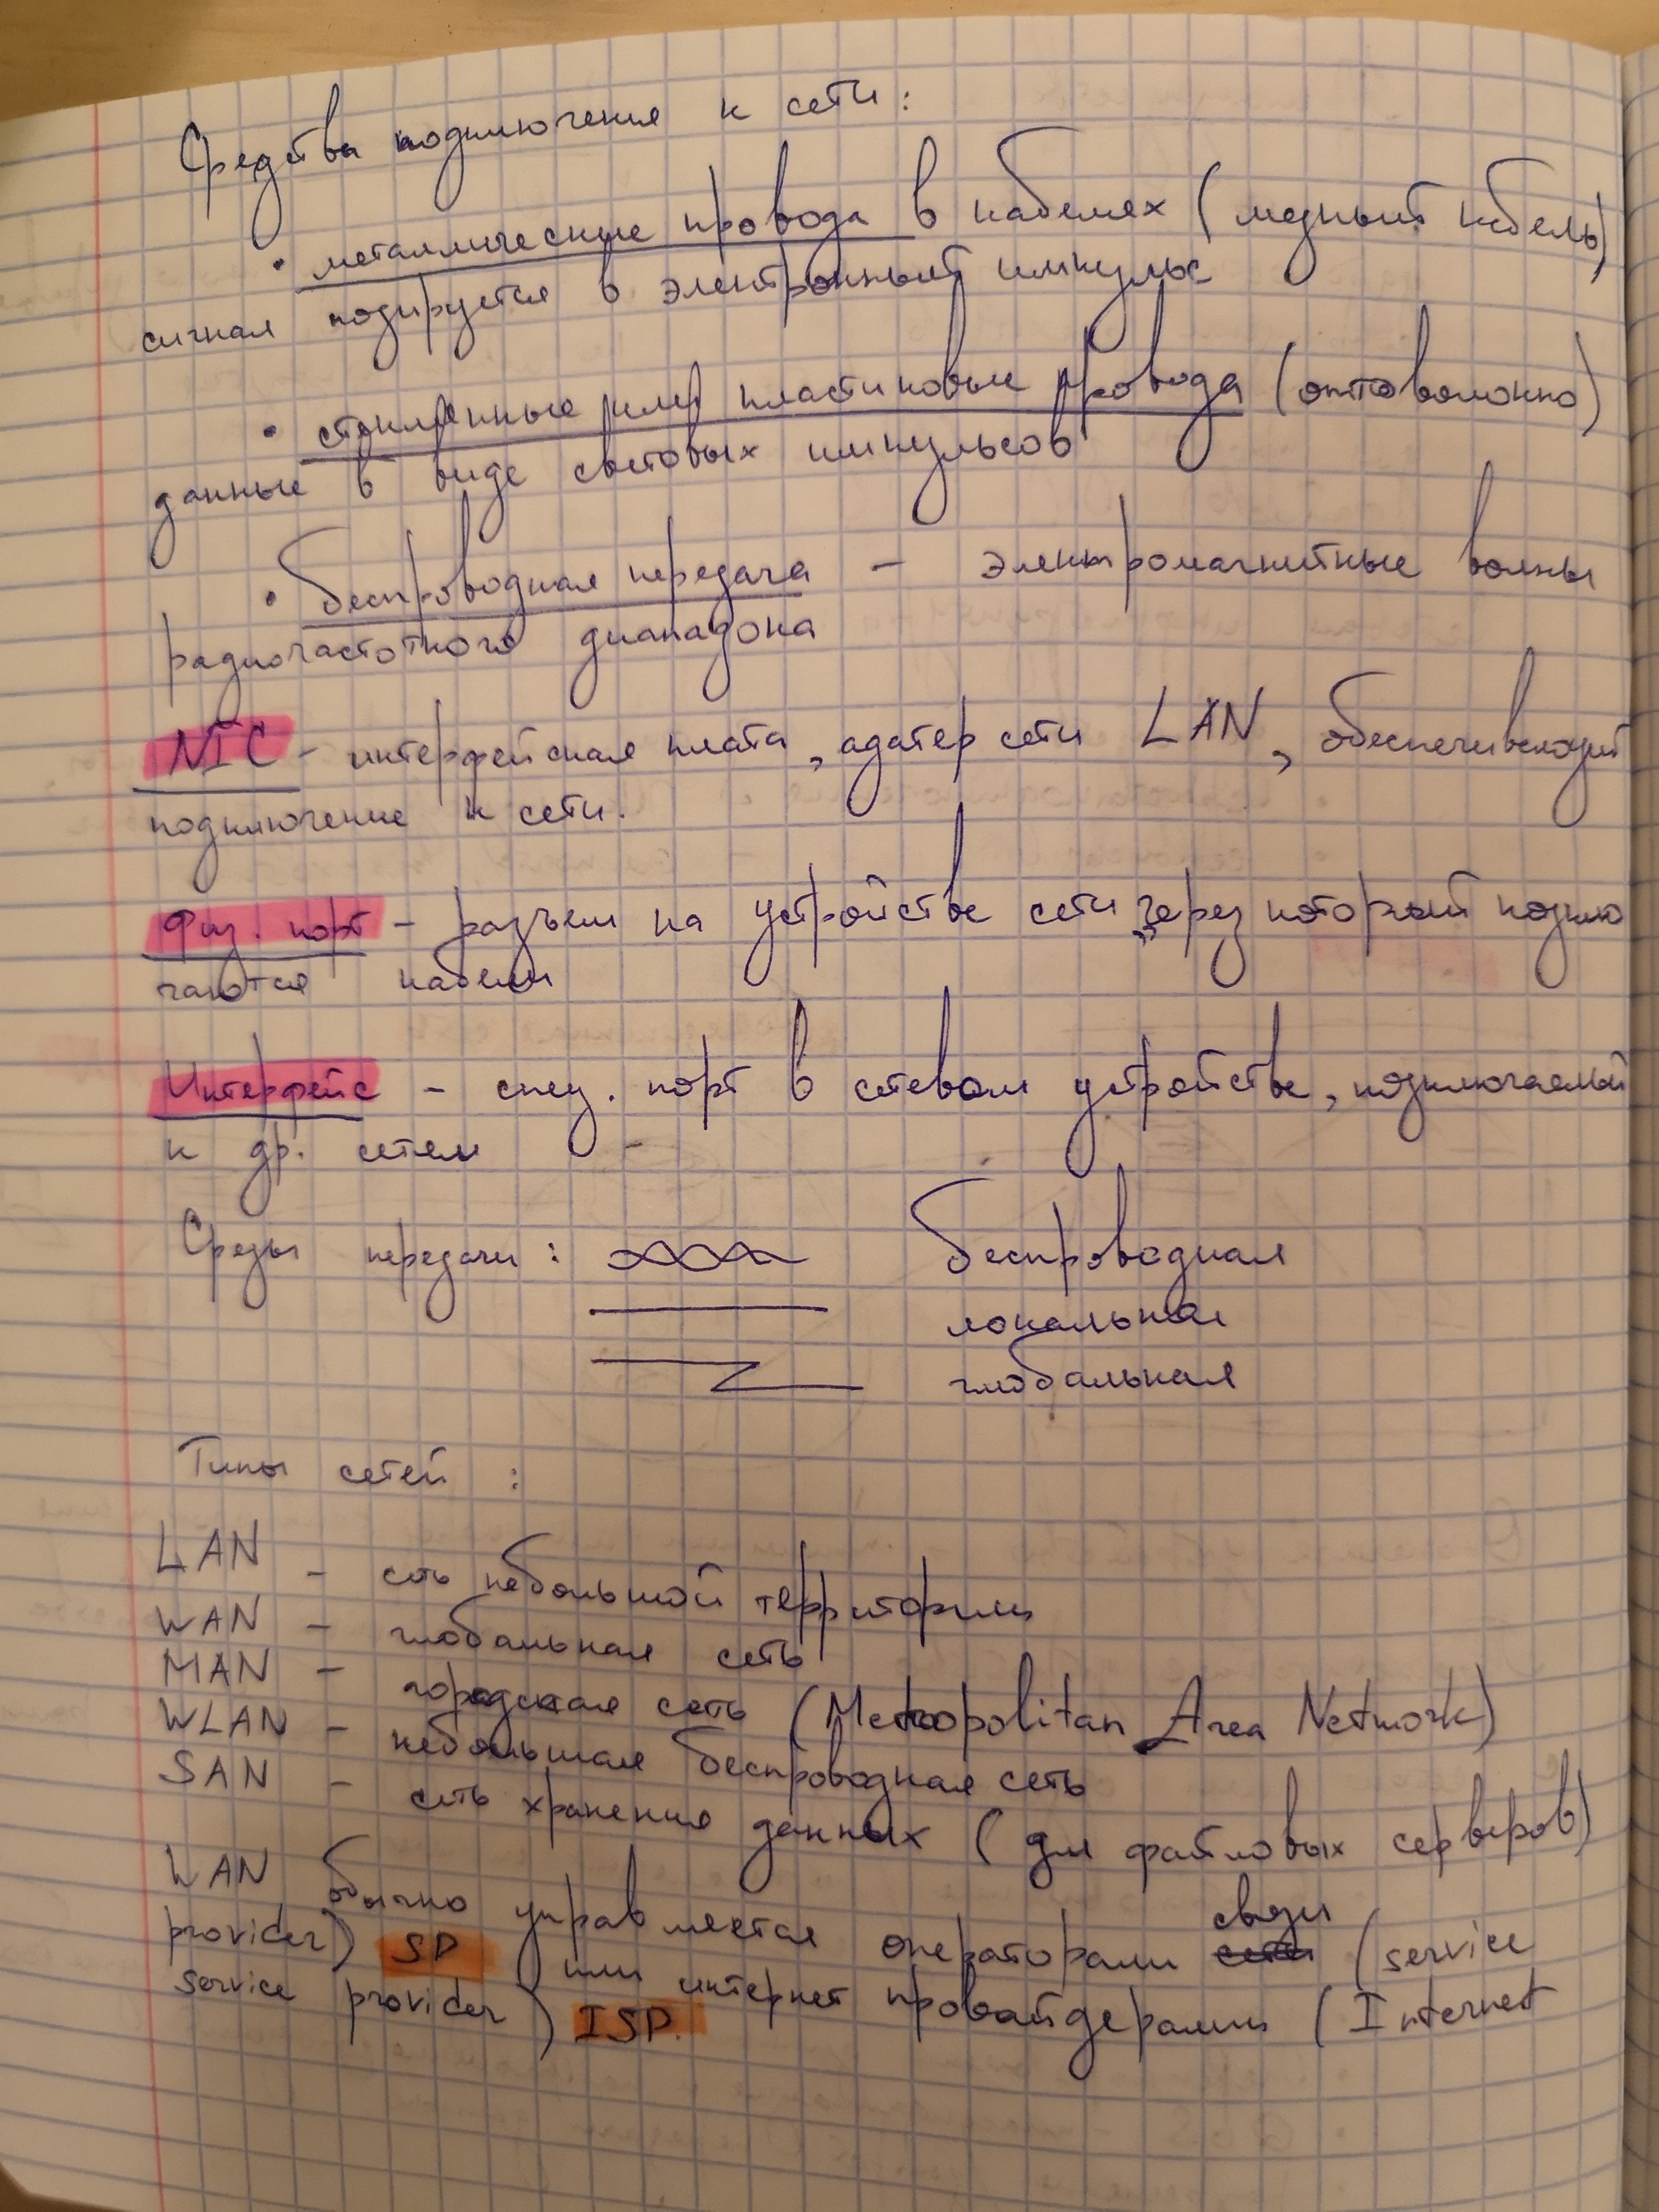 Средства подключения к сети:
• металлические провода в кабелях (медный кабель)
сигнал кодируется в электронный импульс
• стеклянные или пластиковые провода (оптоволокно)
данные в виде световых импульсов
• беспроводная передача – электромагнитные волны
радиочастотного диапазона
NIC – интерфейсная плата, адатер сети LAN, обеспечивающий
подключение к сети.
Физ. порт – разъем на устройстве сети, через который подклю
чаются кабели
Интерфейс – спец. порт в сетевом устройстве, подключаемый
к др. сетям
Среды передачи: беспроводная
локальная
глобальная
Типы сетей:
LAN – сеть небольшой территории
WAN – глобальная сеть
MAN – городская сеть (Metropolitan Area Network)
WLAN – небольшая беспроводная сеть
SAN – сеть хранения данных (для файловых серверов)
WAN обычно управляется операторами сети связи (service
provider) SP или интернет провайдерами (Internet
service provider) ISP.